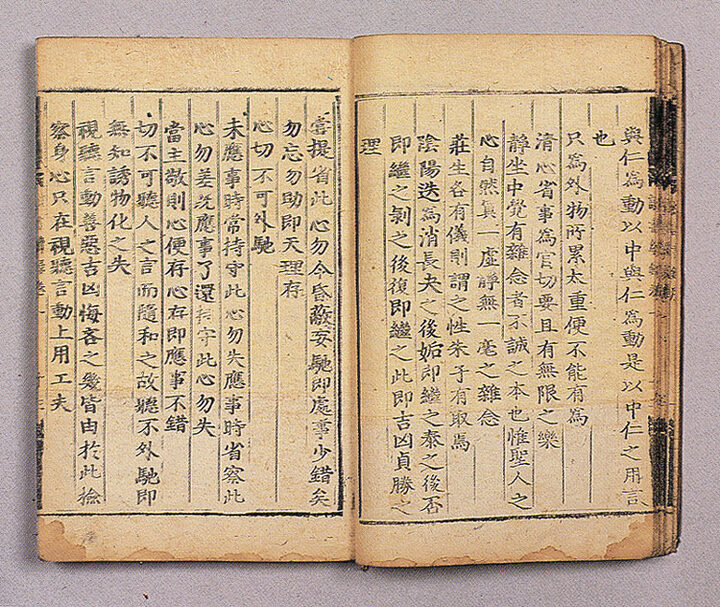 與仁為動以中與仁為動是以中仁之用言
也
只為外物所累太重便不能有為
清心省事為官切要且有無限之樂
靜坐中覺有雜念者不誠之本也惟聖人之
心自然真一虛靜無一毫之雜念
莊生各有儀則謂之性朱子有取焉
陰陽迭為消長夬之後姤即繼之泰之後否
即繼之剝之後復即繼之此即吉凶貞勝之
理
提省此心勿令昏妄馳即處事少錯矣
勿忘勿助即天理存
心切不可外馳
未應事時常持守此心勿失應事時省察此
心勿差既應事了還持守此心勿失
當主敬則心便存心存即應事不錯
切不可聽人之言而隨和之故聽不外馳即
無知誘物化之失
視聽言動善惡吉凶悔吝之幾皆由於此撿
察身心只在視聽言動上用工夫